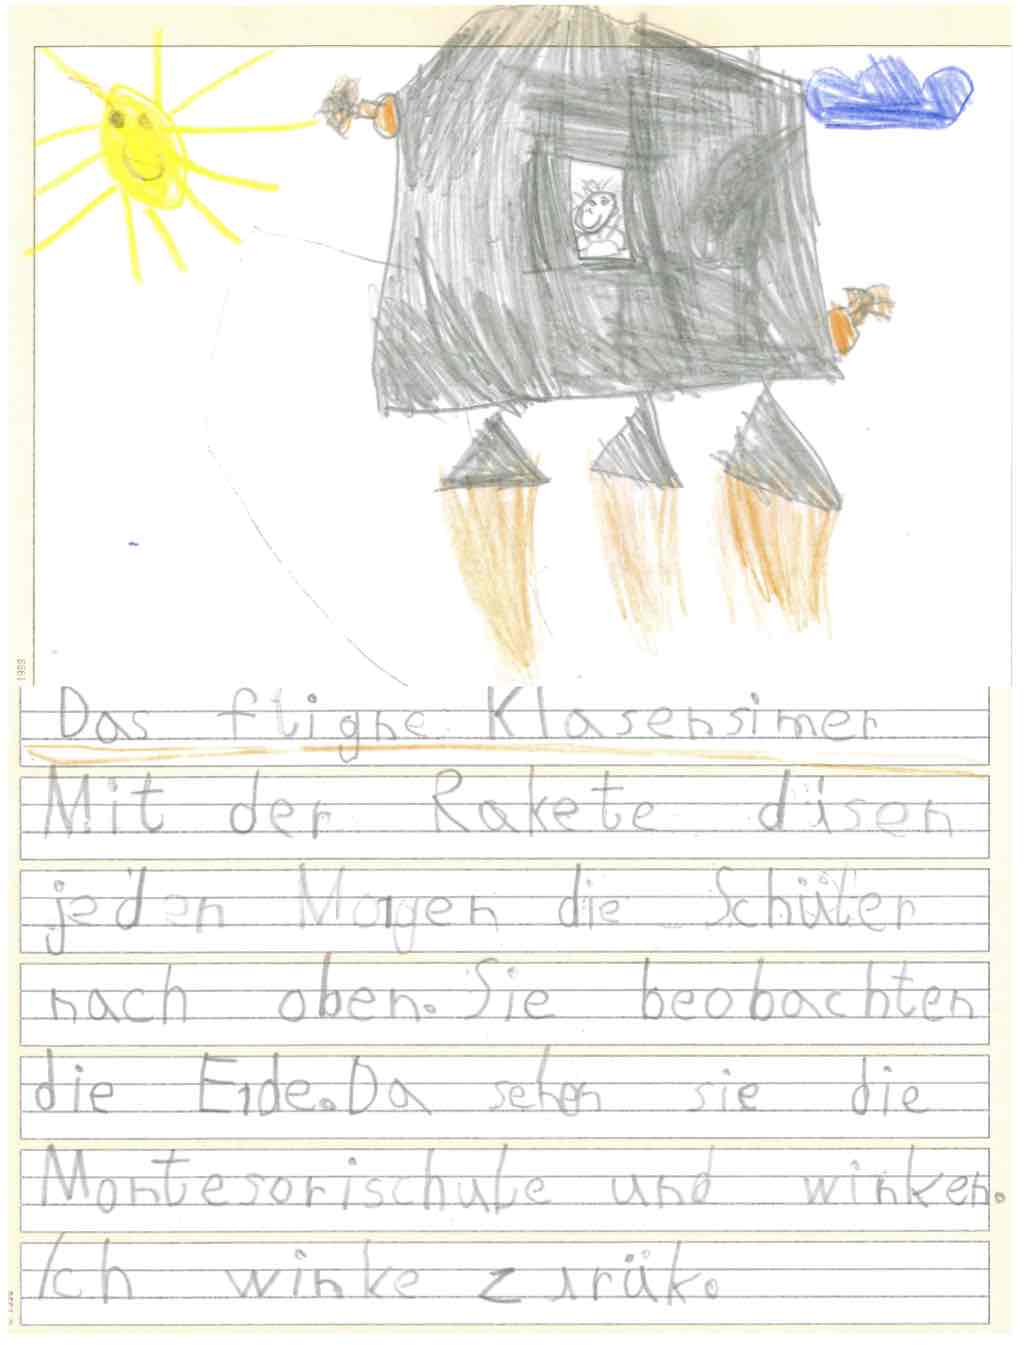 Das fligne Klasensimer
Mit der Rakete düsen
jeden Morgen die Schüler
nach oben. Sie beobachten
die Erde. Da sehen sie die
Montesorischule und winken.
Ich winke zurük.
1998